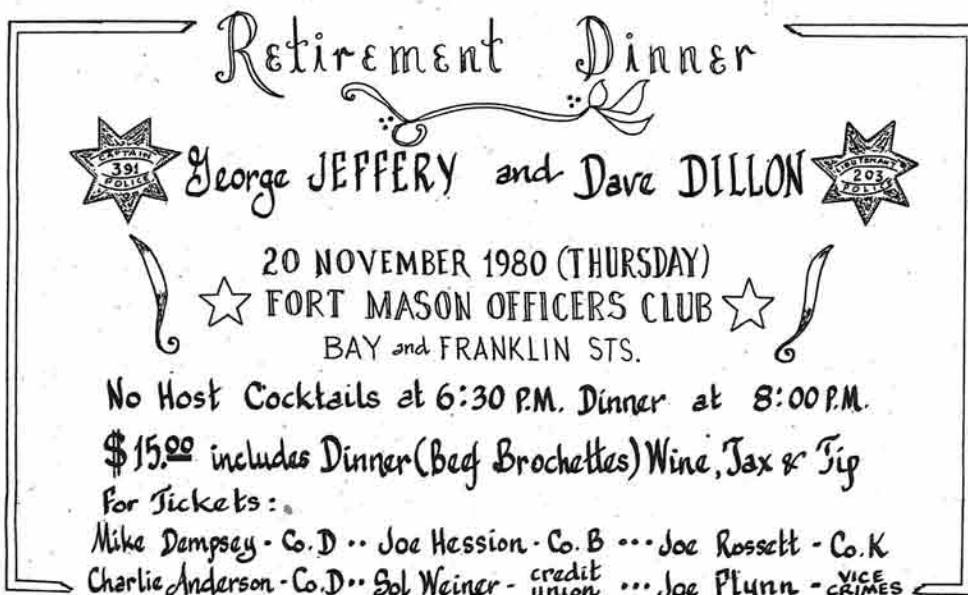 Retirement Dinner
CAPTAIN
391
POLICE
George JEFFERY and Dave DILLON
LIEUTENANT
203
POLICE
20 NOVEMBER 1980 (THURSDAY)
FORT MASON OFFICERS CLUB
BAY and FRANKLIN STS.
No Host Cocktails at 6:30 P.M. Dinner at 8:00 P.M.
$15.00 includes Dinner (Beef Brochettes) Wine, Tax & Tip
For Tickets:
Mike Dempsey - Co. D .. Joe Hession - Co. B ... Joe Rossett - Co. K
Charlie Anderson - Co. D .. Sol Weiner - credit union ... Joe Plynn - VICE CRIMES